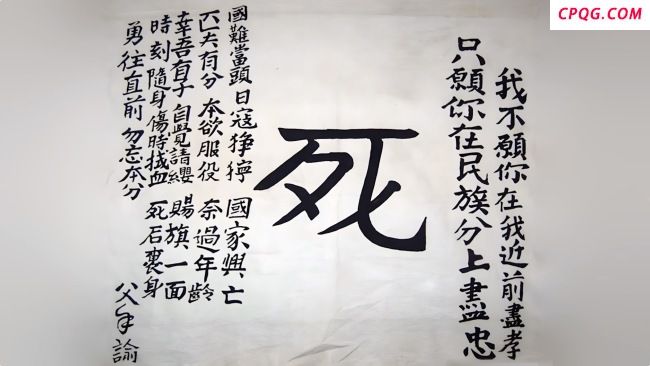 CPQG.COM
我不願你在我近前盡孝
只願你在民族分上盡忠
死
國難當頭 日寇猙獰 國家興亡
匹夫有分 本欲服役 奈過年齡
幸吾有子 自覺請纓 賜旗一面
時刻隨身 傷時拭血 死后裹身
勇往直前 勿忘本分
父手諭